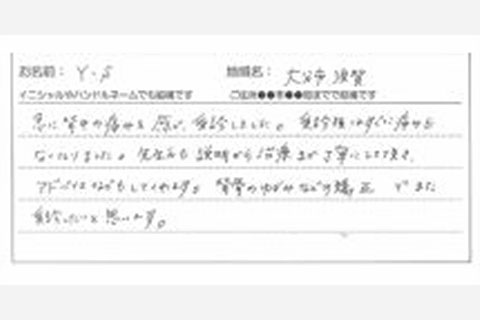 お名前： Y・S 地域名： 大分市 須賀
イニシャルやハンドルネームでも結構です ご住所●●市●●町までで結構です
急に背中の痛みを感じ、受診しました。受診後はすぐに痛みも
なくなりました。先生も説明から治療まで丁寧にして頂き、
アドバイスなどもしてくれます。背骨のゆがみなどの矯正でまた
受診したいと思います。